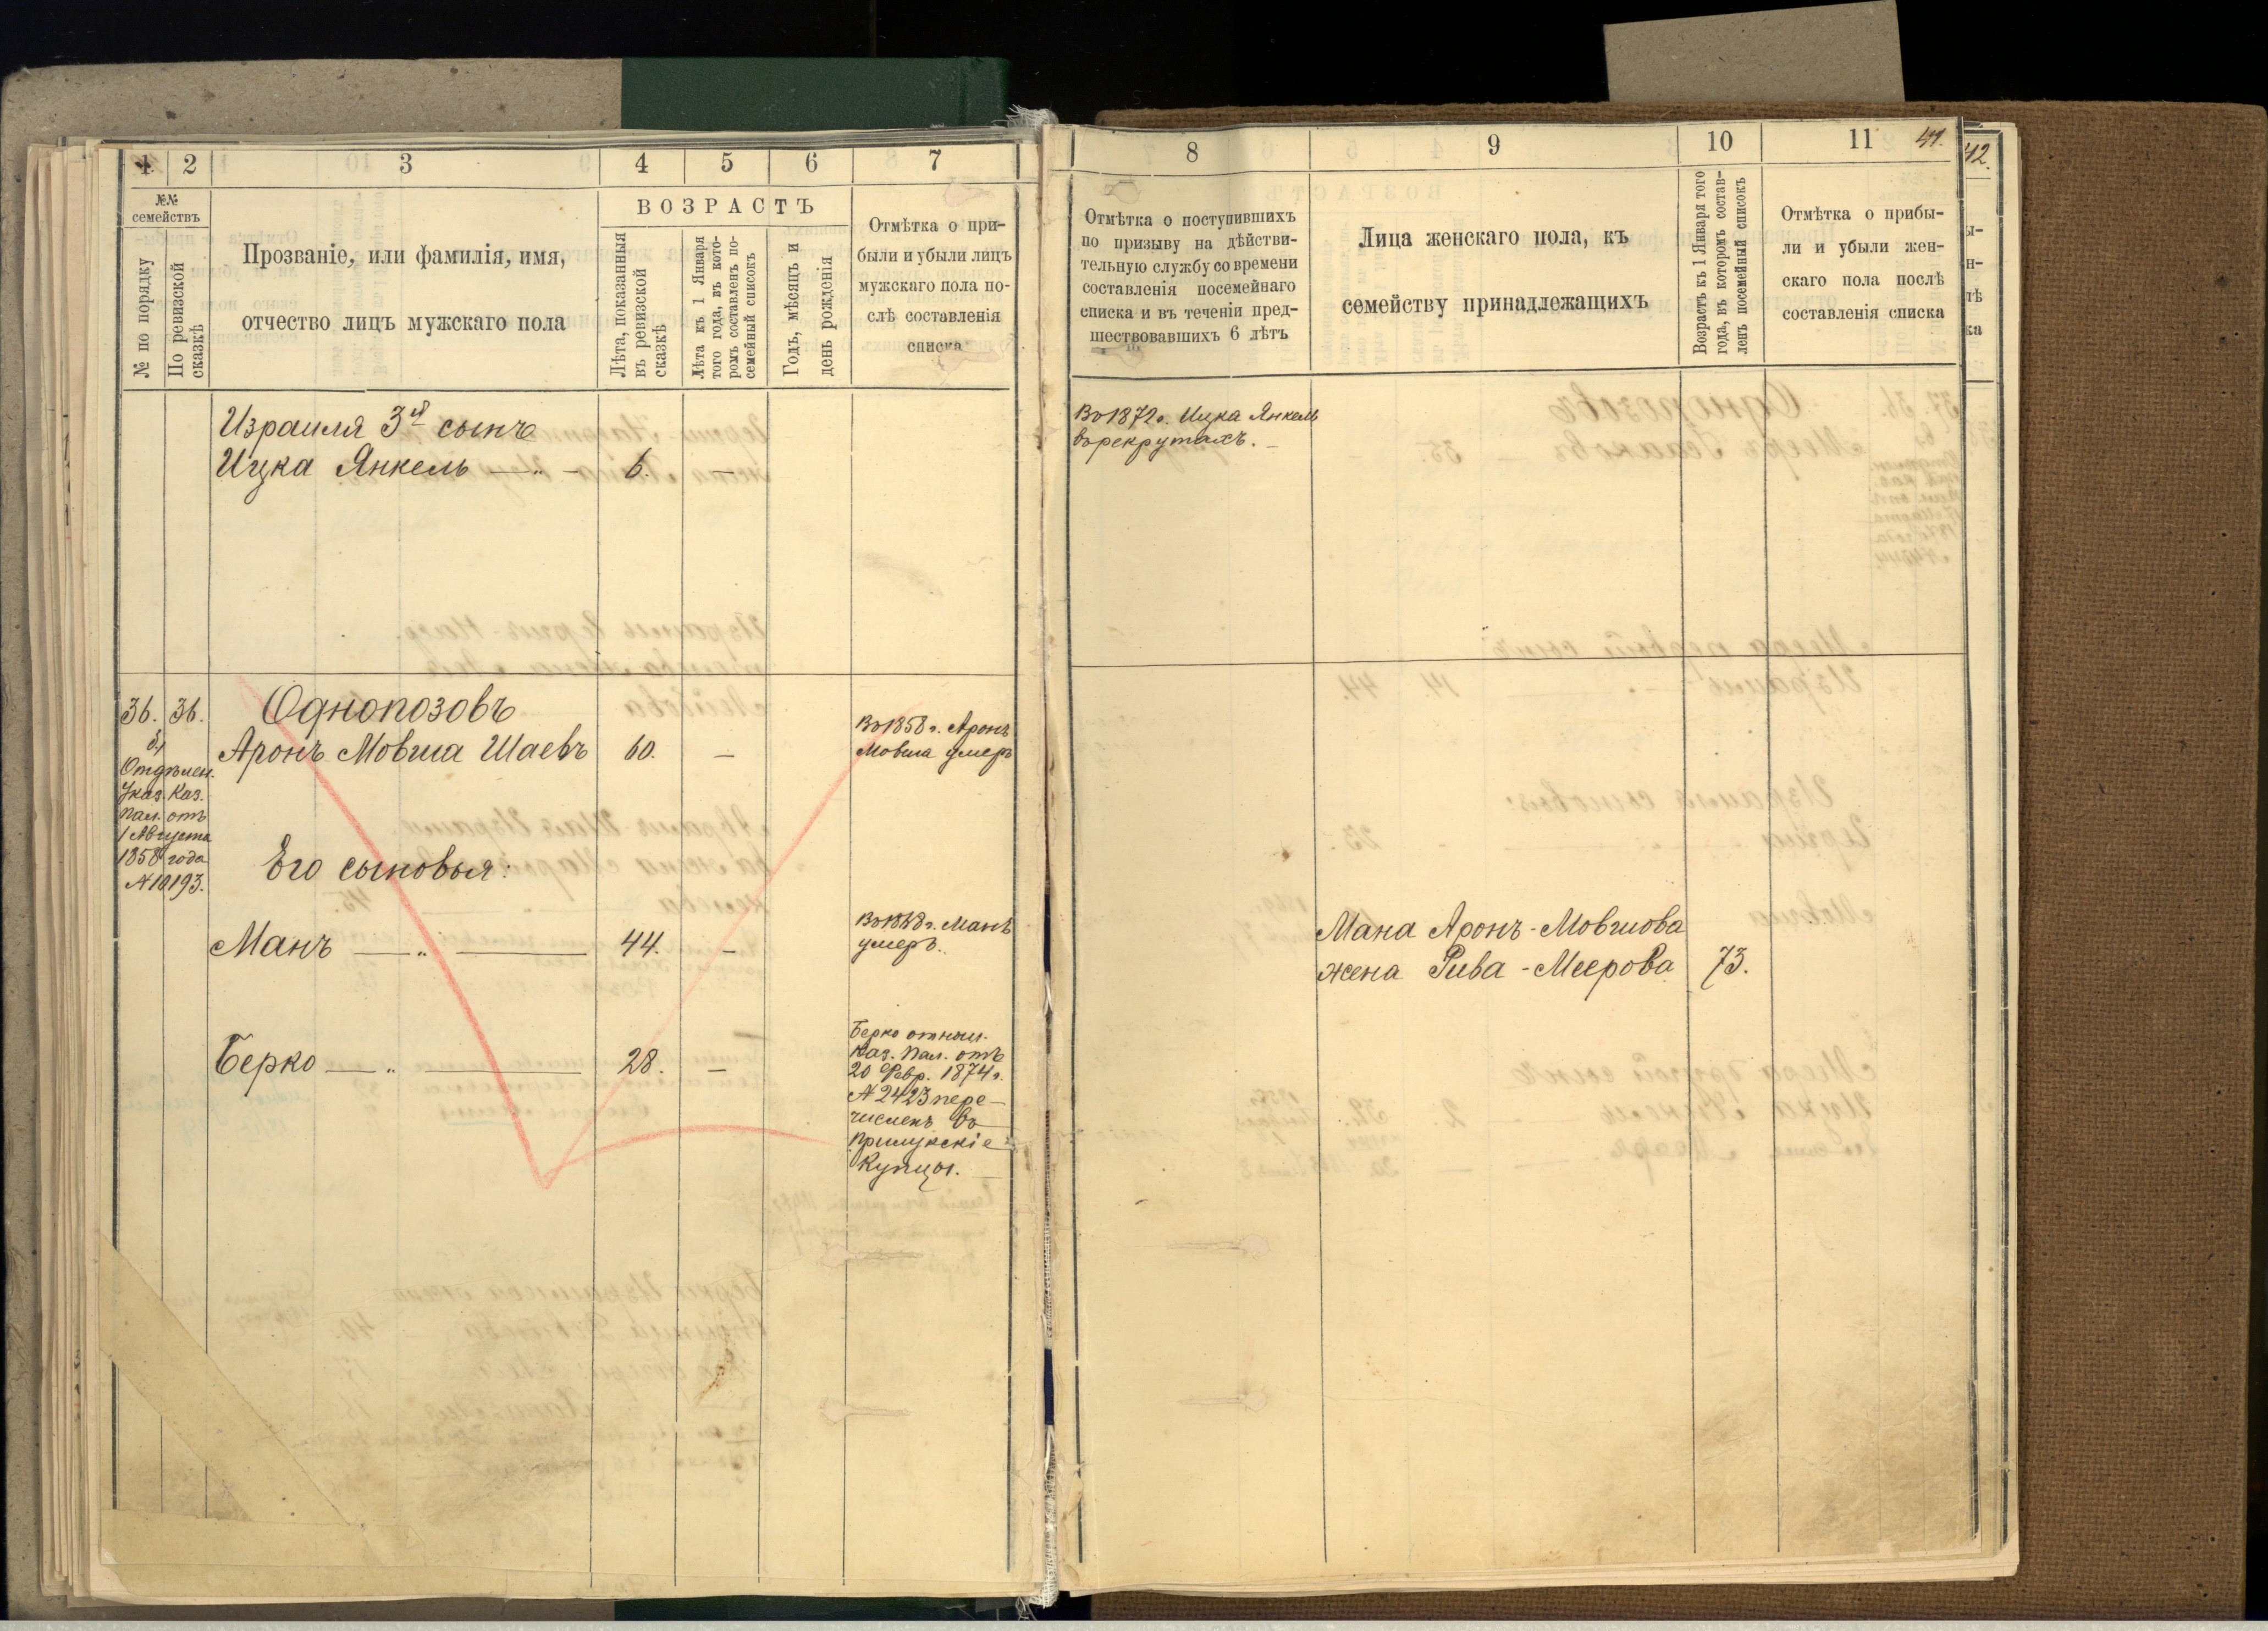 1 2 3 4 5 6 7
№№ семействъ
№ по порядку
По ревизской сказкѣ
Прозваніе, или фамилія, имя,
отчество лицъ мужскаго пола
ВОЗРАСТЪ
Лѣта, показанныя
въ ревизской
сказкѣ
Лѣта къ 1 Января
того года, въ кото-
ромъ составленъ по-
семейный списокъ
Годъ, мѣсяцъ и
день рожденія
Отмѣтка о при-
были и убыли лицъ
мужскаго пола по-
слѣ составленія
списка
Израиля 3й сынъ
Ицка Янкель — „ — 6. —
36. 36. Однопозовъ
Аронъ Мовша Шаевъ 60. —
Во 1858 г. Аронъ
Мовша умеръ
Отдѣлен.
Указ. Каз.
Пал. отъ
1 Августа
1858 года
№ 10193.
Его сыновья:
Манъ — „ — 44. —
Манъ
умеръ.
Берко — „ — 28. —
Берко
Каз. Пал. отъ
20 Февр. 1874 г.
№ 2423 пере-
численъ въ
Прилукскіе
Купцы.
8 9 10 11 41.
Отмѣтка о поступившихъ
по призыву на дѣйстви-
тельную службу со времени
составленія посемейнаго
списка и въ теченіи пред-
шествовавшихъ 6 лѣтъ
Лица женскаго пола, къ
семейству принадлежащихъ
Возрастъ къ 1 Января того
года, въ которомъ состав-
ленъ посемейный списокъ
Отмѣтка о прибы-
ли и убыли жен-
скаго пола послѣ
составленія списка
Во 1872 г. Ицка Янкель
въ рекрутахъ. —
Мана Аронъ-Мовшова
жена Рива-Меерова 73.
42.